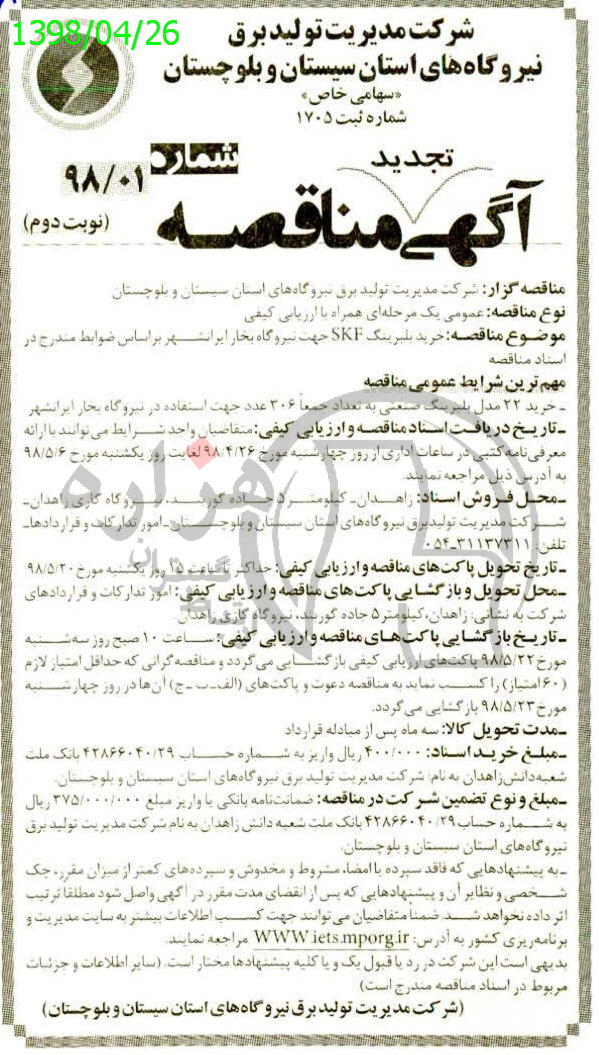 1398/04/26
شرکت مدیریت تولید برق
نیروگاه‌های استان سیستان و بلوچستان
«سهامی خاص»
شماره ثبت ۱۷۰۵
تجدید
شماره ۹۸/۰۱
آگهی مناقصه
(نوبت دوم)
مناقصه گزار: شرکت مدیریت تولید برق نیروگاه‌های استان سیستان و بلوچستان
نوع مناقصه: عمومی یک مرحله‌ای همراه با ارزیابی کیفی
موضوع مناقصه: خرید بلبرینگ SKF جهت نیروگاه بخار ایرانشهر براساس ضوابط مندرج در
اسناد مناقصه
مهم ترین شرایط عمومی مناقصه
ـ خرید ۲۲ مدل بلبرینگ صنعتی به تعداد جمعاً ۳۰۶ عدد جهت استفاده در نیروگاه بخار ایرانشهر
ـ تاریخ دریافت اسناد مناقصه و ارزیابی کیفی: متقاضیان واجد شرایط می‌توانند با ارائه
معرفی‌نامه کتبی در ساعات اداری از روز چهارشنبه مورخ ۹۸/۴/۲۶ لغایت روز یکشنبه مورخ ۹۸/۵/۶
به آدرس ذیل مراجعه نمایند.
ـ محل فروش اسناد: زاهدان ـ کیلومتر ۵ جاده گوربند، نیروگاه گازی زاهدان ـ
شرکت مدیریت تولید برق نیروگاه‌های استان سیستان و بلوچستان ـ امور تدارکات و قراردادها ـ
تلفن: ۳۱۱۳۷۳۱۱ـ۰۵۴
ـ تاریخ تحویل پاکت‌های مناقصه و ارزیابی کیفی: حداکثر تا ساعت ۱۵ روز یکشنبه مورخ ۹۸/۵/۲۰
ـ محل تحویل و بازگشایی پاکت‌های مناقصه و ارزیابی کیفی: امور تدارکات و قراردادهای
شرکت به نشانی: زاهدان، کیلومتر ۵ جاده گوربند، نیروگاه گازی زاهدان.
ـ تاریخ بازگشایی پاکت‌های مناقصه و ارزیابی کیفی: ساعت ۱۰ صبح روز سه‌شنبه
مورخ ۹۸/۵/۲۲ پاکت‌های ارزیابی کیفی بازگشایی می‌گردد و مناقصه‌گرانی که حداقل امتیاز لازم
(۶۰ امتیاز) را کسب نماید به مناقصه دعوت و پاکت‌های (الف ـ ب ـ ج) آن‌ها در روز چهارشنبه
مورخ ۹۸/۵/۲۳ بازگشایی می‌گردد.
ـ مدت تحویل کالا: سه ماه پس از مبادله قرارداد
ـ مبلغ خرید اسناد: ۴۰۰/۰۰۰ ریال واریز به شماره حساب ۴۲۸۶۶۰۴۰/۲۹ بانک ملت
شعبه دانش زاهدان به نام: شرکت مدیریت تولید برق نیروگاه‌های استان سیستان و بلوچستان.
ـ مبلغ و نوع تضمین شرکت در مناقصه: ضمانت‌نامه بانکی یا واریز مبلغ ۳۷۵/۰۰۰/۰۰۰ ریال
به شماره حساب ۴۲۸۶۶۰۴۰/۲۹ بانک ملت شعبه دانش زاهدان به نام شرکت مدیریت تولید برق
نیروگاه‌های استان سیستان و بلوچستان.
ـ به پیشنهادهایی که فاقد سپرده یا امضا، مشروط و مخدوش و سپرده‌های کمتر از میزان مقرر، چک
شخصی و نظایر آن و پیشنهادهایی که پس از انقضای مدت مقرر در آگهی واصل شود مطلقا ترتیب
اثر داده نخواهد شد. ضمنا متقاضیان می‌توانند جهت کسب اطلاعات بیشتر به سایت مدیریت و
برنامه‌ریزی کشور به آدرس: WWW.iets.mporg.ir مراجعه نمایند.
بدیهی است این شرکت در رد یا قبول یک و یا کلیه پیشنهادها مختار است. (سایر اطلاعات و جزئیات
مربوط در اسناد مناقصه مندرج است)
(شرکت مدیریت تولید برق نیروگاه‌های استان سیستان و بلوچستان)